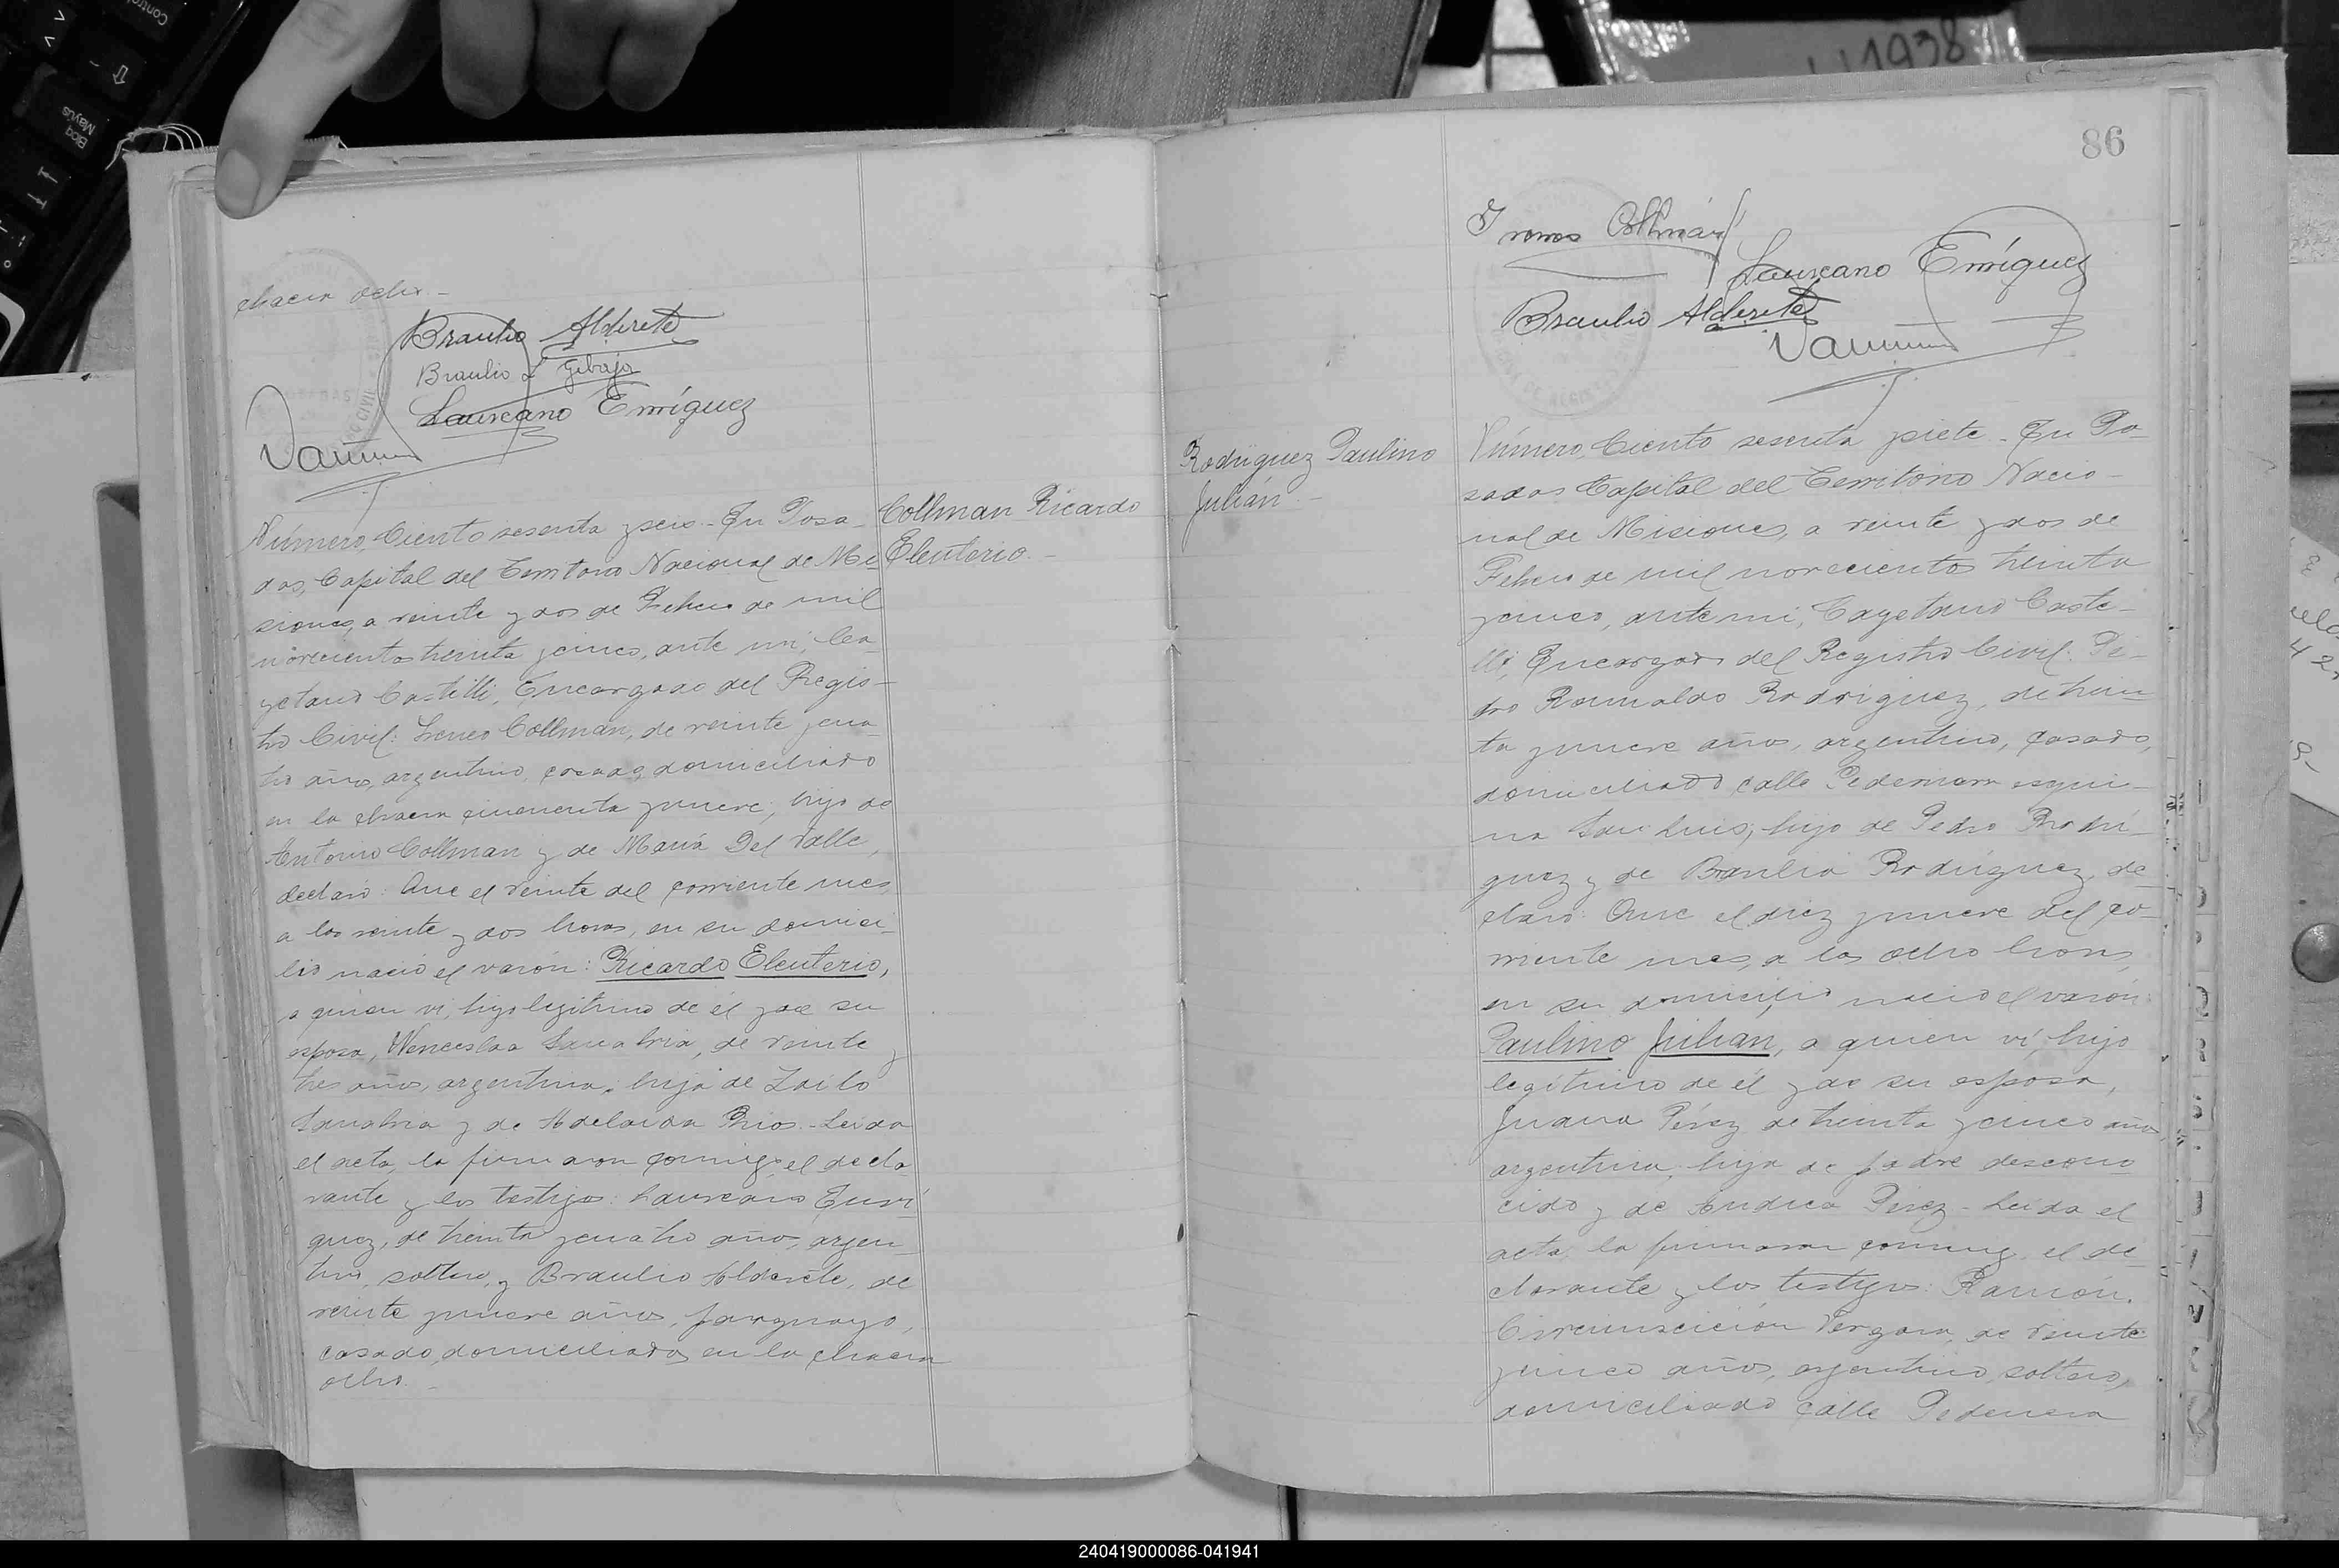 chacra ocho.-
Braulio Alderete
Braulio L Gebajo
Laureano Enríquez
Collman Ricardo
Eleuterio.-
Número, Ciento sesenta y seis.- En Posa-
das, Capital del Territorio Nacional de Mi-
siones, a veinte y dos de Febrero de mil
novecientos treinta y cinco, ante mi, Ca-
yetano Castelli, Encargado del Regis-
tro Civil: Ireneo Collman, de veinte y cua-
tro años, argentino, casado, domiciliado
en la chacra cincuenta y nueve, hijo de
Antonio Collman y de María Del Valle,
declaró: Que el veinte del corriente mes,
a las veinte y dos horas, en su domici-
lio nació el varón: Ricardo Eleuterio,
a quien vi, hijo legítimo de él y de su
esposa, Wenceslaa Sanabria, de veinte y
tres años, argentina, hija de Zoilo
Sanabria y de Adelaida Rios.- Leida
el acta, la firmaron conmigo, el decla-
rante y los testigos: Laureano Enrí-
quez, de treinta y cuatro años, argen-
tino, soltero, y Braulio Alderete, de
veinte y nueve años, paraguayo,
casado, domiciliados en la chacra
ocho.-
86
Ireneo Collman
Laureano Enríquez
Braulio Alderete
Rodríguez Paulino
Julián.-
Número, Ciento sesenta y siete.- En Po-
sadas Capital del Territorio Nacio-
nal de Misiones, a veinte y dos de
Febrero de mil novecientos treinta
y cinco, ante mi, Cayetano Caste-
lli, Encargado del Registro Civil: Pe-
dro Romualdo Rodriguez, de trein-
ta y nueve años, argentino, casado,
domiciliado calle Pedernera esqui-
na San Luis, hijo de Pedro Rodrí-
guez y de Braulia Rodríguez, de-
claró: Que el diez y nueve del co-
rriente mes, a las ocho horas,
en su domicilio nació el varón:
Paulino Julian, a quien ví, hijo
legítimo de él y de su esposa,
Juana Pérez, de treinta y cinco años,
argentina, hija de padre descono-
cido y de Andrea Pérez.- Leída el
acta, la firmaron conmigo, el de-
clarante y los testigos: Ramón
Circunscición Vergara, de veinte
y cinco años, argentino, soltero,
domiciliado calle Pedernera
240419000086-041941